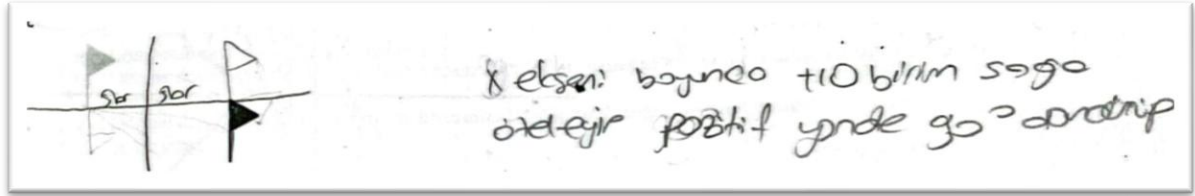 5br 5br
X ekseni boyunca +10 birim sağa
öteleyip pozitif yönde 90° döndürüp